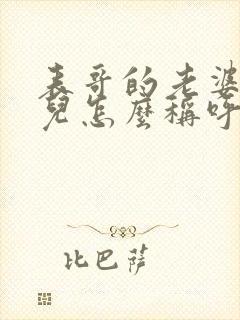 表哥的老婆
兒怎麼稱呼
比巴薩